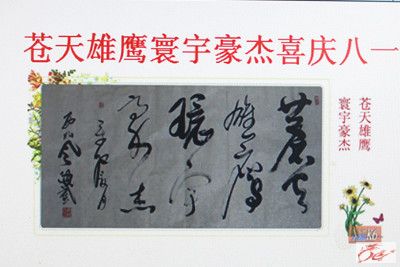 苍天雄鹰寰宇豪杰喜庆八一
蒼天
雄鷹
環宇
豪杰
苍天雄鹰
寰宇豪杰